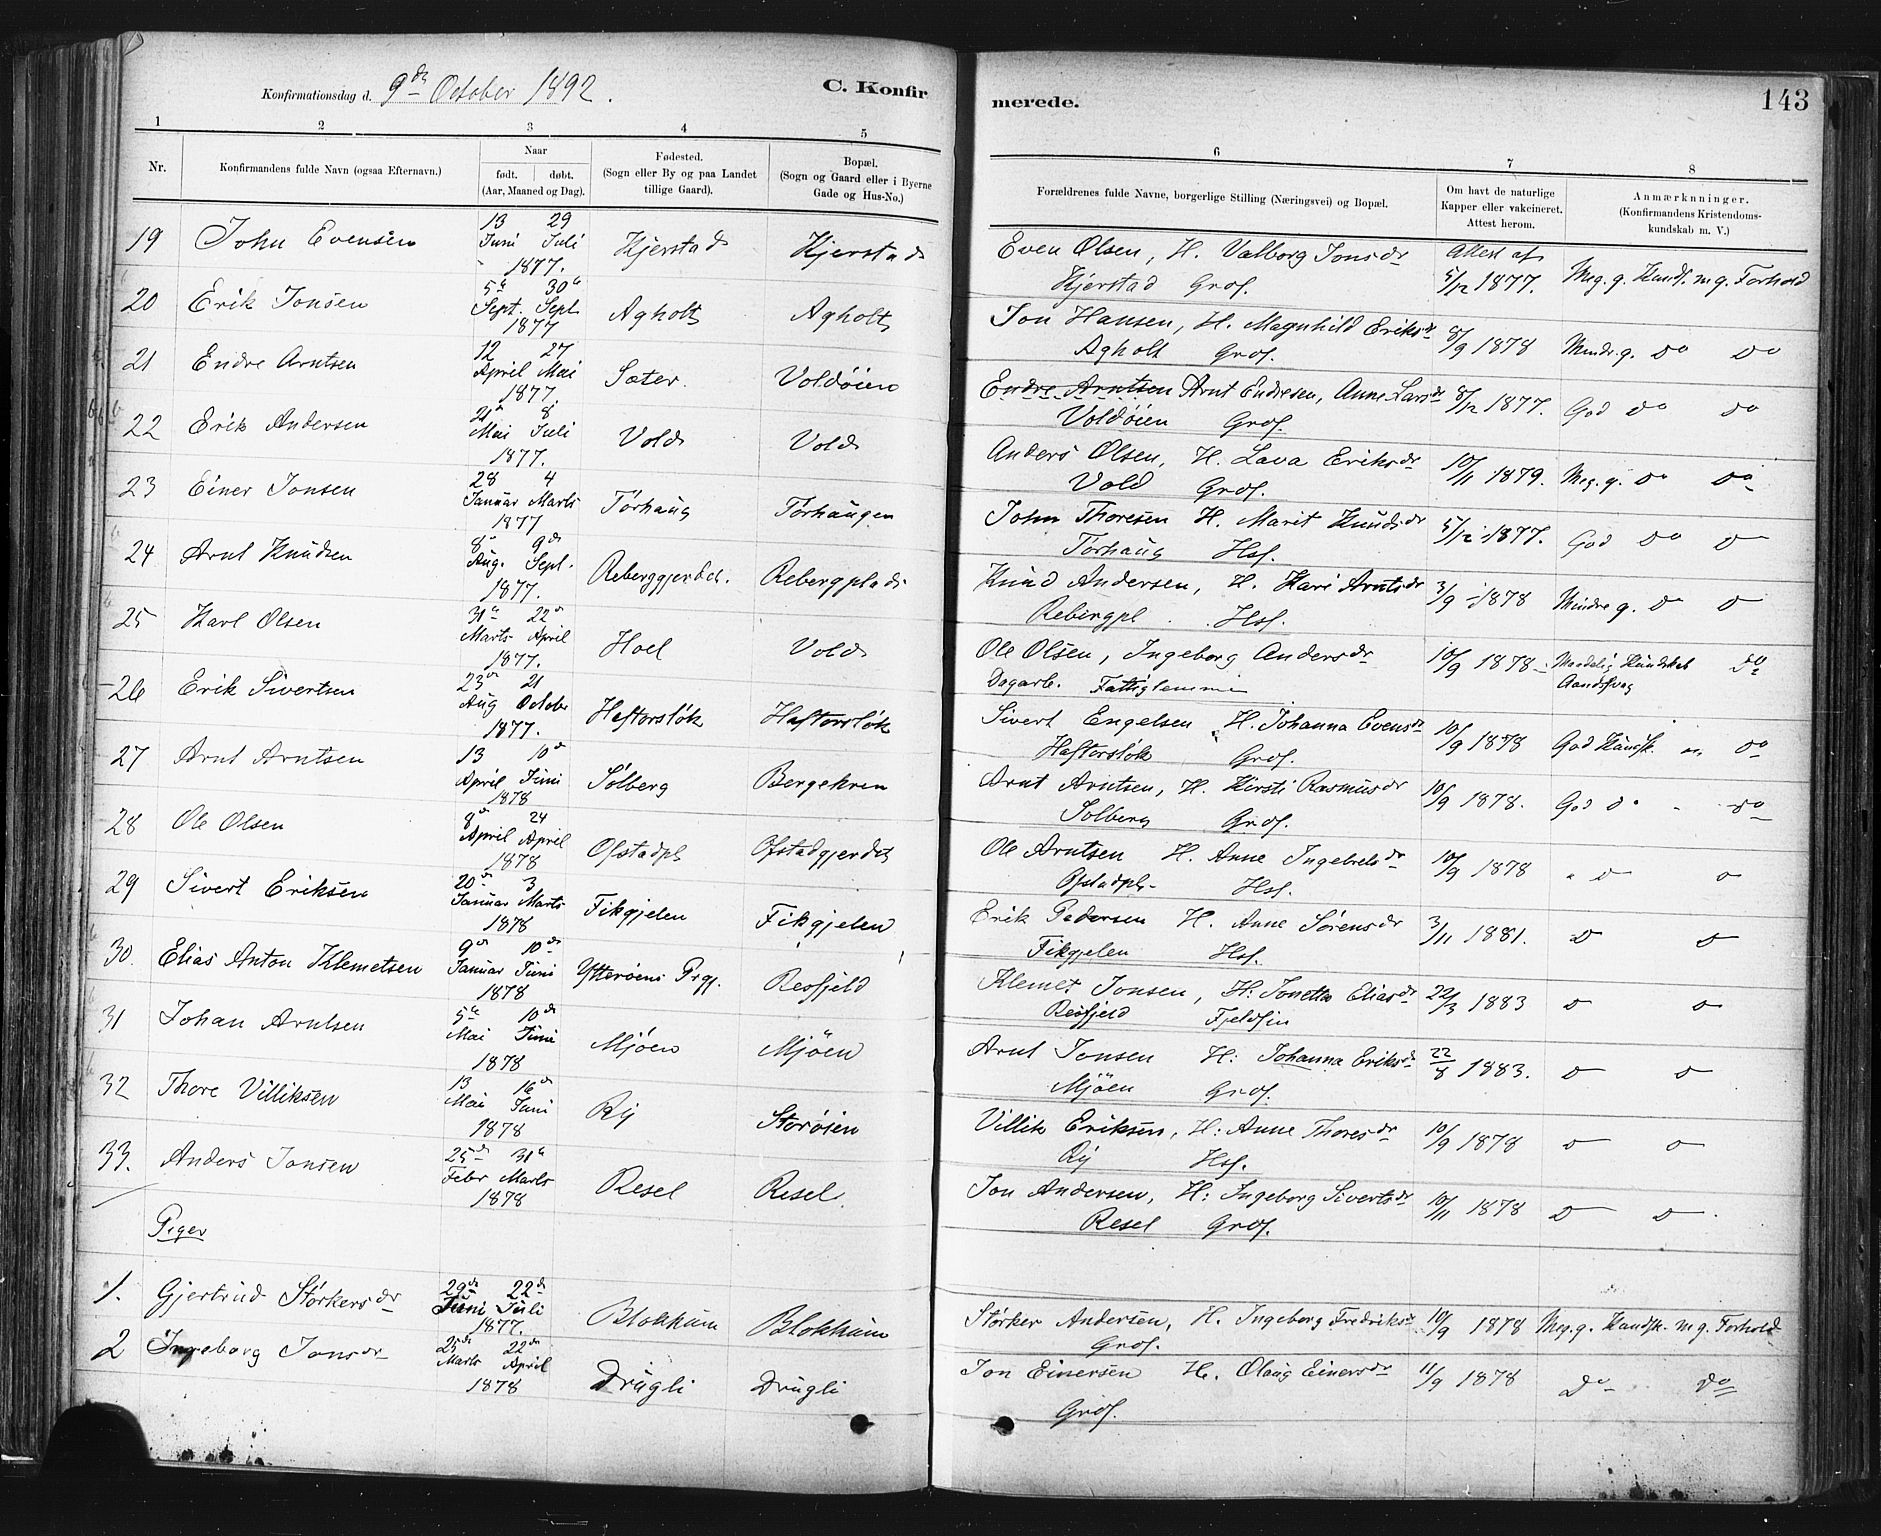 Konfirmationsdag d. 9de October 1892.
C. Konfir
merede.
143
1 2 3 4 5
6 7 8
Nr.
Konfirmandens fulde Navn (ogsaa Efternavn.)
Naar
født. døbt.
(Aar, Maaned og Dag).
Fødested.
(Sogn eller By og paa Landet
tillige Gaard).
Bopæl.
(Sogn og Gaard eller i Byerne
Gade og Hus-No.)
Forældrenes fulde Navne, borgerlige Stilling (Næringsvei) og Bopæl.
Om havt de naturlige
Kopper eller vakcineret.
Attest herom.
Anmærkninger.
(Konfirmandens Kristendoms-
kundskab m. V.)
19 John Evensen 13 Juni 29 Juli 1877. Hjerstad Hjerstad Even Olsen, H. Valborg Jonsdr Attest af
Hjerstad Grdf. 5/12 1877. Meg. g. Kundsk. m g. Forhold
20 Erik Jonsen 5te Sept. 30te Sept 1877 Agholt Agholt Jon Hansen, H. Magnhild Eriksdr
Agholt Grdf. 8/9 1878 Mindr. g. do do
21 Endre Arntsen 12 April 27 Mai 1877. Sæter. Voldøien Endre Arntsen Arnt Endresen, Anne Larsdr
Voldøien Grdf. 8/12 1877. God do do
22 Erik Andersen 21 Mai 8 Juli 1877. Vold Vold Anders Olsen, H. Lava Eriksdr
Vold Grdf. 10/11 1879. Meg. g. do do
23 Einer Jonsen 28 Januar 4 Marts 1877 Tørhaug Tørhaugen John Thoresen H. Marit Knudsdr
Tørhaug Hsf. 5/12 1877. God do do
24 Arnt Knudsen 8 Aug. 9de Sept. 1877. Rebergplads Knud Andersen, H. Kari Arntsdr
Rebergpl. Hsf. 3/9 1878 Mindre g. do do
25 Karl Olsen 31te Marts 22 April 1877. Hoel Vold Ole Olsen, Ingeborg Andersdr
Dagarb. Fattiglemmer 10/9 1878 Maadelig Kundskab do
Aandssvag
26 Erik Sivertsen 23de Aug 21 October 1877. Haftorsløk Haftorsløk Sivert Engelsen H. Johanna Evensdr
Haftorsløk Grdf. 10/9 1878 God Kundsk. do
27 Arnt Arntsen 13 April 10de Juni 1878 Solberg Bergekren Arnt Arntsen, H. Kirsti Rasmusdr
Solberg Grdf. 10/9 1878. God do do
28 Ole Olsen 8de April 24 April 1878 Ofstadpl Ofstadgjerdet Ole Arntsen H. Anne Ingebretsdr
Ofstadpl. Hsf. 10/9 1878 do do
29 Sivert Eriksen 20de Januar 3 Marts 1878 Fikgjelen Fikgjelen Erik Pedersen H. Anne Sørensdr
Fikgjelen Hsf. 3/11 1881. do do
30. Elias Anton Klemetsen 9de Januar 10de Juni 1878 Ytterøens Prgj. Resfjeld Klemet Jonsen, H: Jonetta Eliasdr
Resfjeld 22/3 1883 do do
31 Johan Arntsen 5te Mai 10de Juni 1878 Mjøen Mjøen Arnt Jonsen H: Johanna Eriksdr
Mjøen Grdf. 22/8 1883. do do
32 Thore Villiksen 13 Mai 16de Juni 1878 Ry Storøien Villik Eriksen, H: Anne Thoresdr
Ry Hsf. 10/9 1878 do do
33. Anders Jonsen 25de Febr 31te Marts 1878 Resel Resel. Jon Andersen, H: Ingeborg Sivertsdr
Resel Grdf. 10/11 1878 do do
Piger
1. Gjertrud Størkersdr 29de Juni 22de Juli 1877. Blokkum Blokkum Størker Andersen, H. Ingeborg Fredriksdr
Grdf. 10/9 1878 Meg. g. Kundsk. m g. Forhold
2 Ingeborg Jonsdr 25de Marts 22de April 1878 Drugli Drugli Jon Einersen H. Olaug Einersdr
Grdf. 11/9 1878 Do do